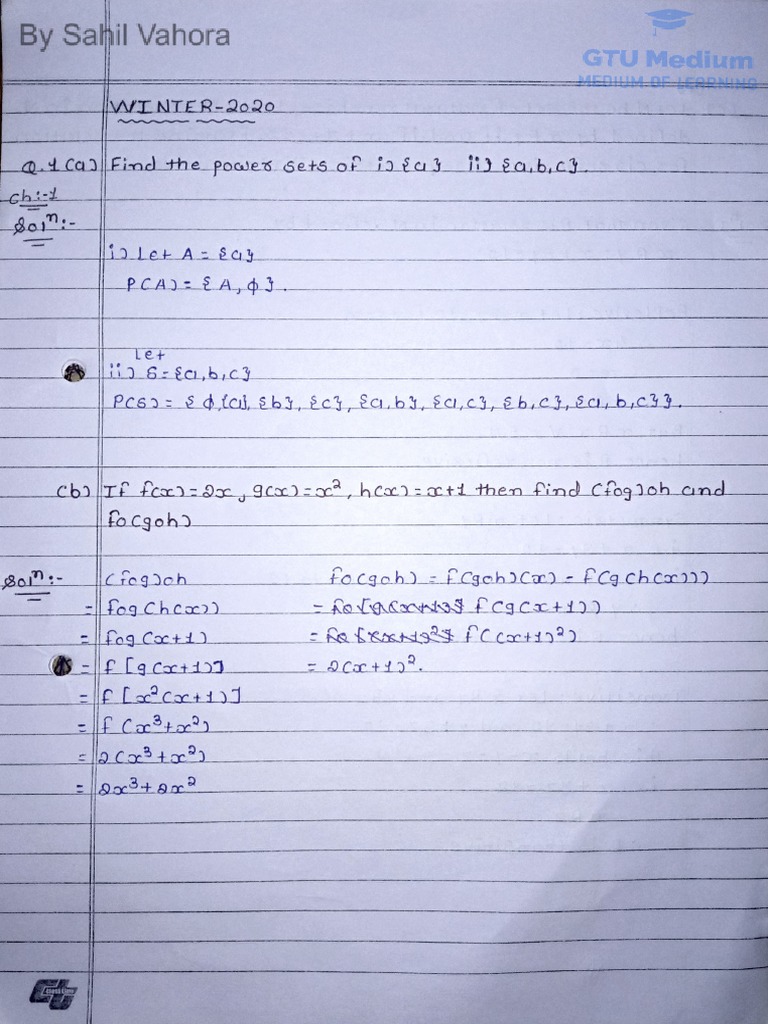 By Sahil Vahora
GTU Medium
MEDIUM OF LEARNING
WINTER-2020
Q.1(a) Find the power sets of i) {a} ii) {a,b,c}.
Ch:-1
Solⁿ:-
i) Let A = {a}
P(A) = {A, ϕ}.
Let
ii) S = {a,b,c}
P(S) = {ϕ,{a}, {b}, {c}, {a,b}, {a,c}, {b,c}, {a,b,c}}.
(b) If f(x) = 2x, g(x) = x², h(x) = x+1 then find (fog)oh and
fo(goh)
Solⁿ:- (fog)oh
= fog(h(x))
= fog(x+1)
= f[g(x+1)]
= f[x²(x+1)]
= f(x³+x²)
= 2(x³+x²)
= 2x³+2x²
fo(goh) = f(goh)(x) = f(g(h(x)))
= f(g(x+1))
= f((x+1)²)
= 2(x+1)².